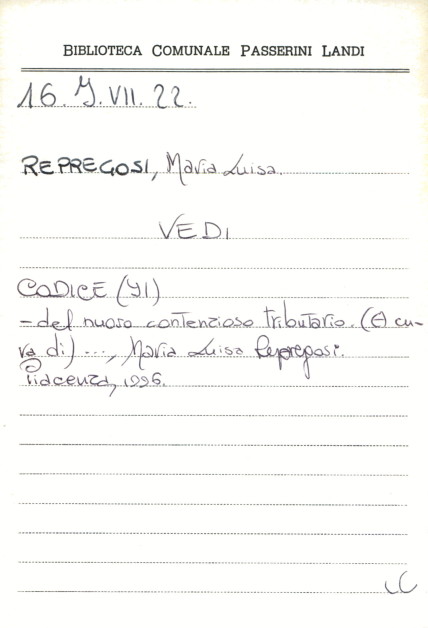 BIBLIOTECA COMUNALE PASSERINI LANDI
16. J. VII. 22.
REPREGOSI, Maria Luisa.
VEDI
CODICE (JI)
- del nuovo contenzioso tributario. (A cu-
ra di) ..., Maria Luisa Repregosi.
Piacenza, 1996.